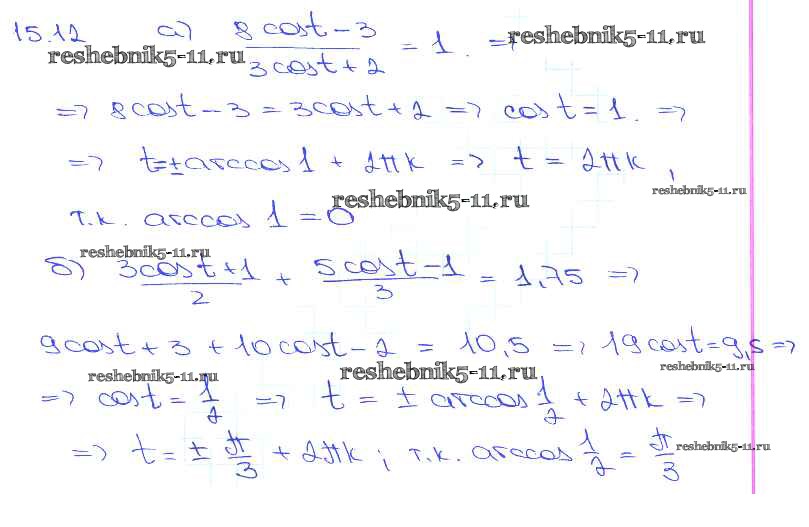 15.12 а) (8 cos t - 3)/(3 cos t + 2) = 1. =>
reshebnik5-11.ru reshebnik5-11.ru
=> 8 cos t - 3 = 3 cos t + 2 => cos t = 1. =>
=> t = ± arccos 1 + 2πk => t = 2πk,
reshebnik5-11.ru
т.к. arccos 1 = 0
reshebnik5-11.ru
reshebnik5-11.ru
б) (3 cos t + 1)/2 + (5 cos t - 1)/3 = 1,75 =>
9 cos t + 3 + 10 cos t - 2 = 10,5 => 19 cos t = 9,5 =>
reshebnik5-11.ru reshebnik5-11.ru reshebnik5-11.ru
=> cos t = 1/2 => t = ± arccos 1/2 + 2πk =>
=> t = ± π/3 + 2πk; т.к. arccos 1/2 = π/3
reshebnik5-11.ru